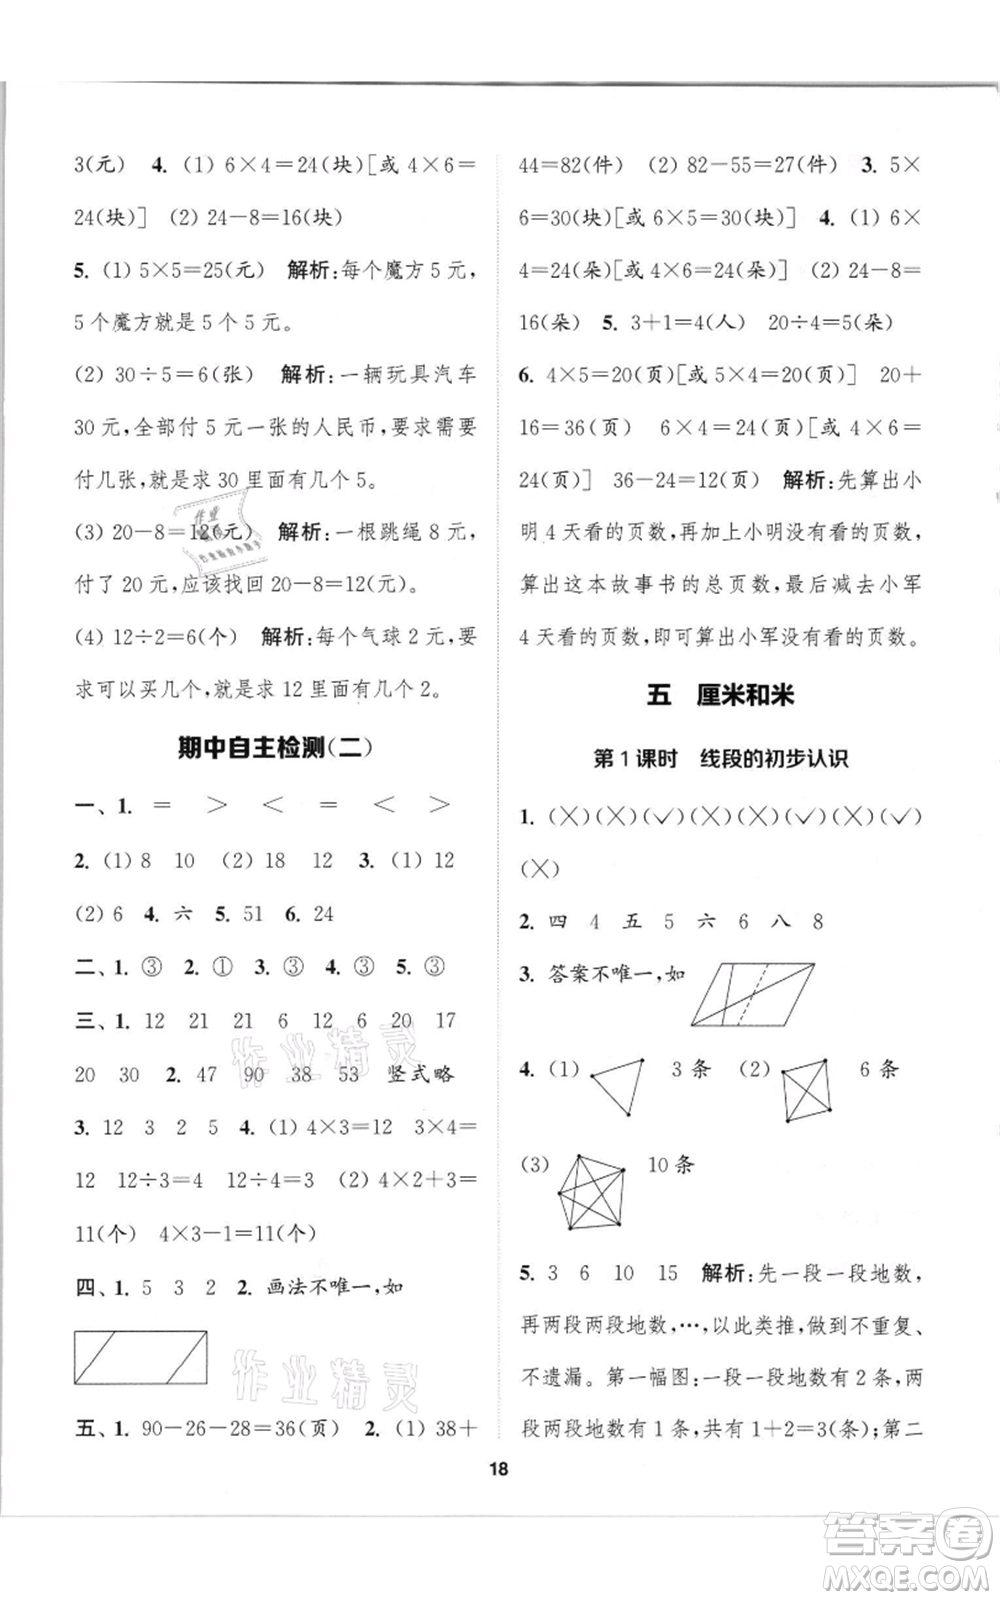 3(元) 4. (1) 6×4=24(块)[或 4×6=
24(块)] (2) 24-8=16(块)
5. (1) 5×5=25(元) 解析:每个魔方 5 元,
5 个魔方就是 5 个 5 元。
(2) 30÷5=6(张) 解析:一辆玩具汽车
30 元,全部付 5 元一张的人民币,要求需要
付几张,就是求 30 里面有几个 5。
(3) 20-8=12(元) 解析:一根跳绳 8 元,
付了 20 元,应该找回 20-8=12(元)。
(4) 12÷2=6(个) 解析:每个气球 2 元,要
求可以买几个,就是求 12 里面有几个 2。
期中自主检测(二)
一、1. = > < = > <
2. (1) 8 10 (2) 18 12 3. (1) 12
(2) 6 4. 六 5. 51 6. 24
二、1. ③ 2. ① 3. ③ 4. ③ 5. ③
三、1. 12 21 21 6 12 6 20 17
20 30 2. 47 90 38 53 竖式略
3. 12 3 2 5 4. (1) 4×3=12 3×4=
12 12÷3=4 12÷4=3 (2) 4×2+3=
11(个) 4×3-1=11(个)
四、1. 5 3 2 2. 画法不唯一,如
五、1. 90-26-28=36(页) 2. (1) 38+
44=82(件) (2) 82-55=27(件) 3. 5×
6=30(块)[或 6×5=30(块)] 4. (1) 6×
4=24(朵)[或 4×6=24(朵)] (2) 24-8=
16(朵) 5. 3+1=4(人) 20÷4=5(朵)
6. 4×5=20(页)[或 5×4=20(页)] 20+
16=36(页) 6×4=24(页)[或 4×6=
24(页)] 36-24=12(页) 解析:先算出小
明 4 天看的页数,再加上小明没有看的页数,
算出这本故事书的总页数,最后减去小军
4 天看的页数,即可算出小军没有看的页数。
五 厘米和米
第 1 课时 线段的初步认识
1. (×)(×)(✓)(×)(×)(✓)(×)(✓)
(×)
2. 四 4 五 5 六 6 八 8
3. 答案不唯一,如
4. (1) 3 条 (2) 6 条
(3) 10 条
5. 3 6 10 15 解析:先一段一段地数,
再两段两段地数,…,以此类推,做到不重复、
不遗漏。第一幅图:一段一段地数有 2 条,
两段两段地数有 1 条,共有 1+2=3(条)。第二
18
作业精灵
作业精灵
答案卷
MXQE.COM